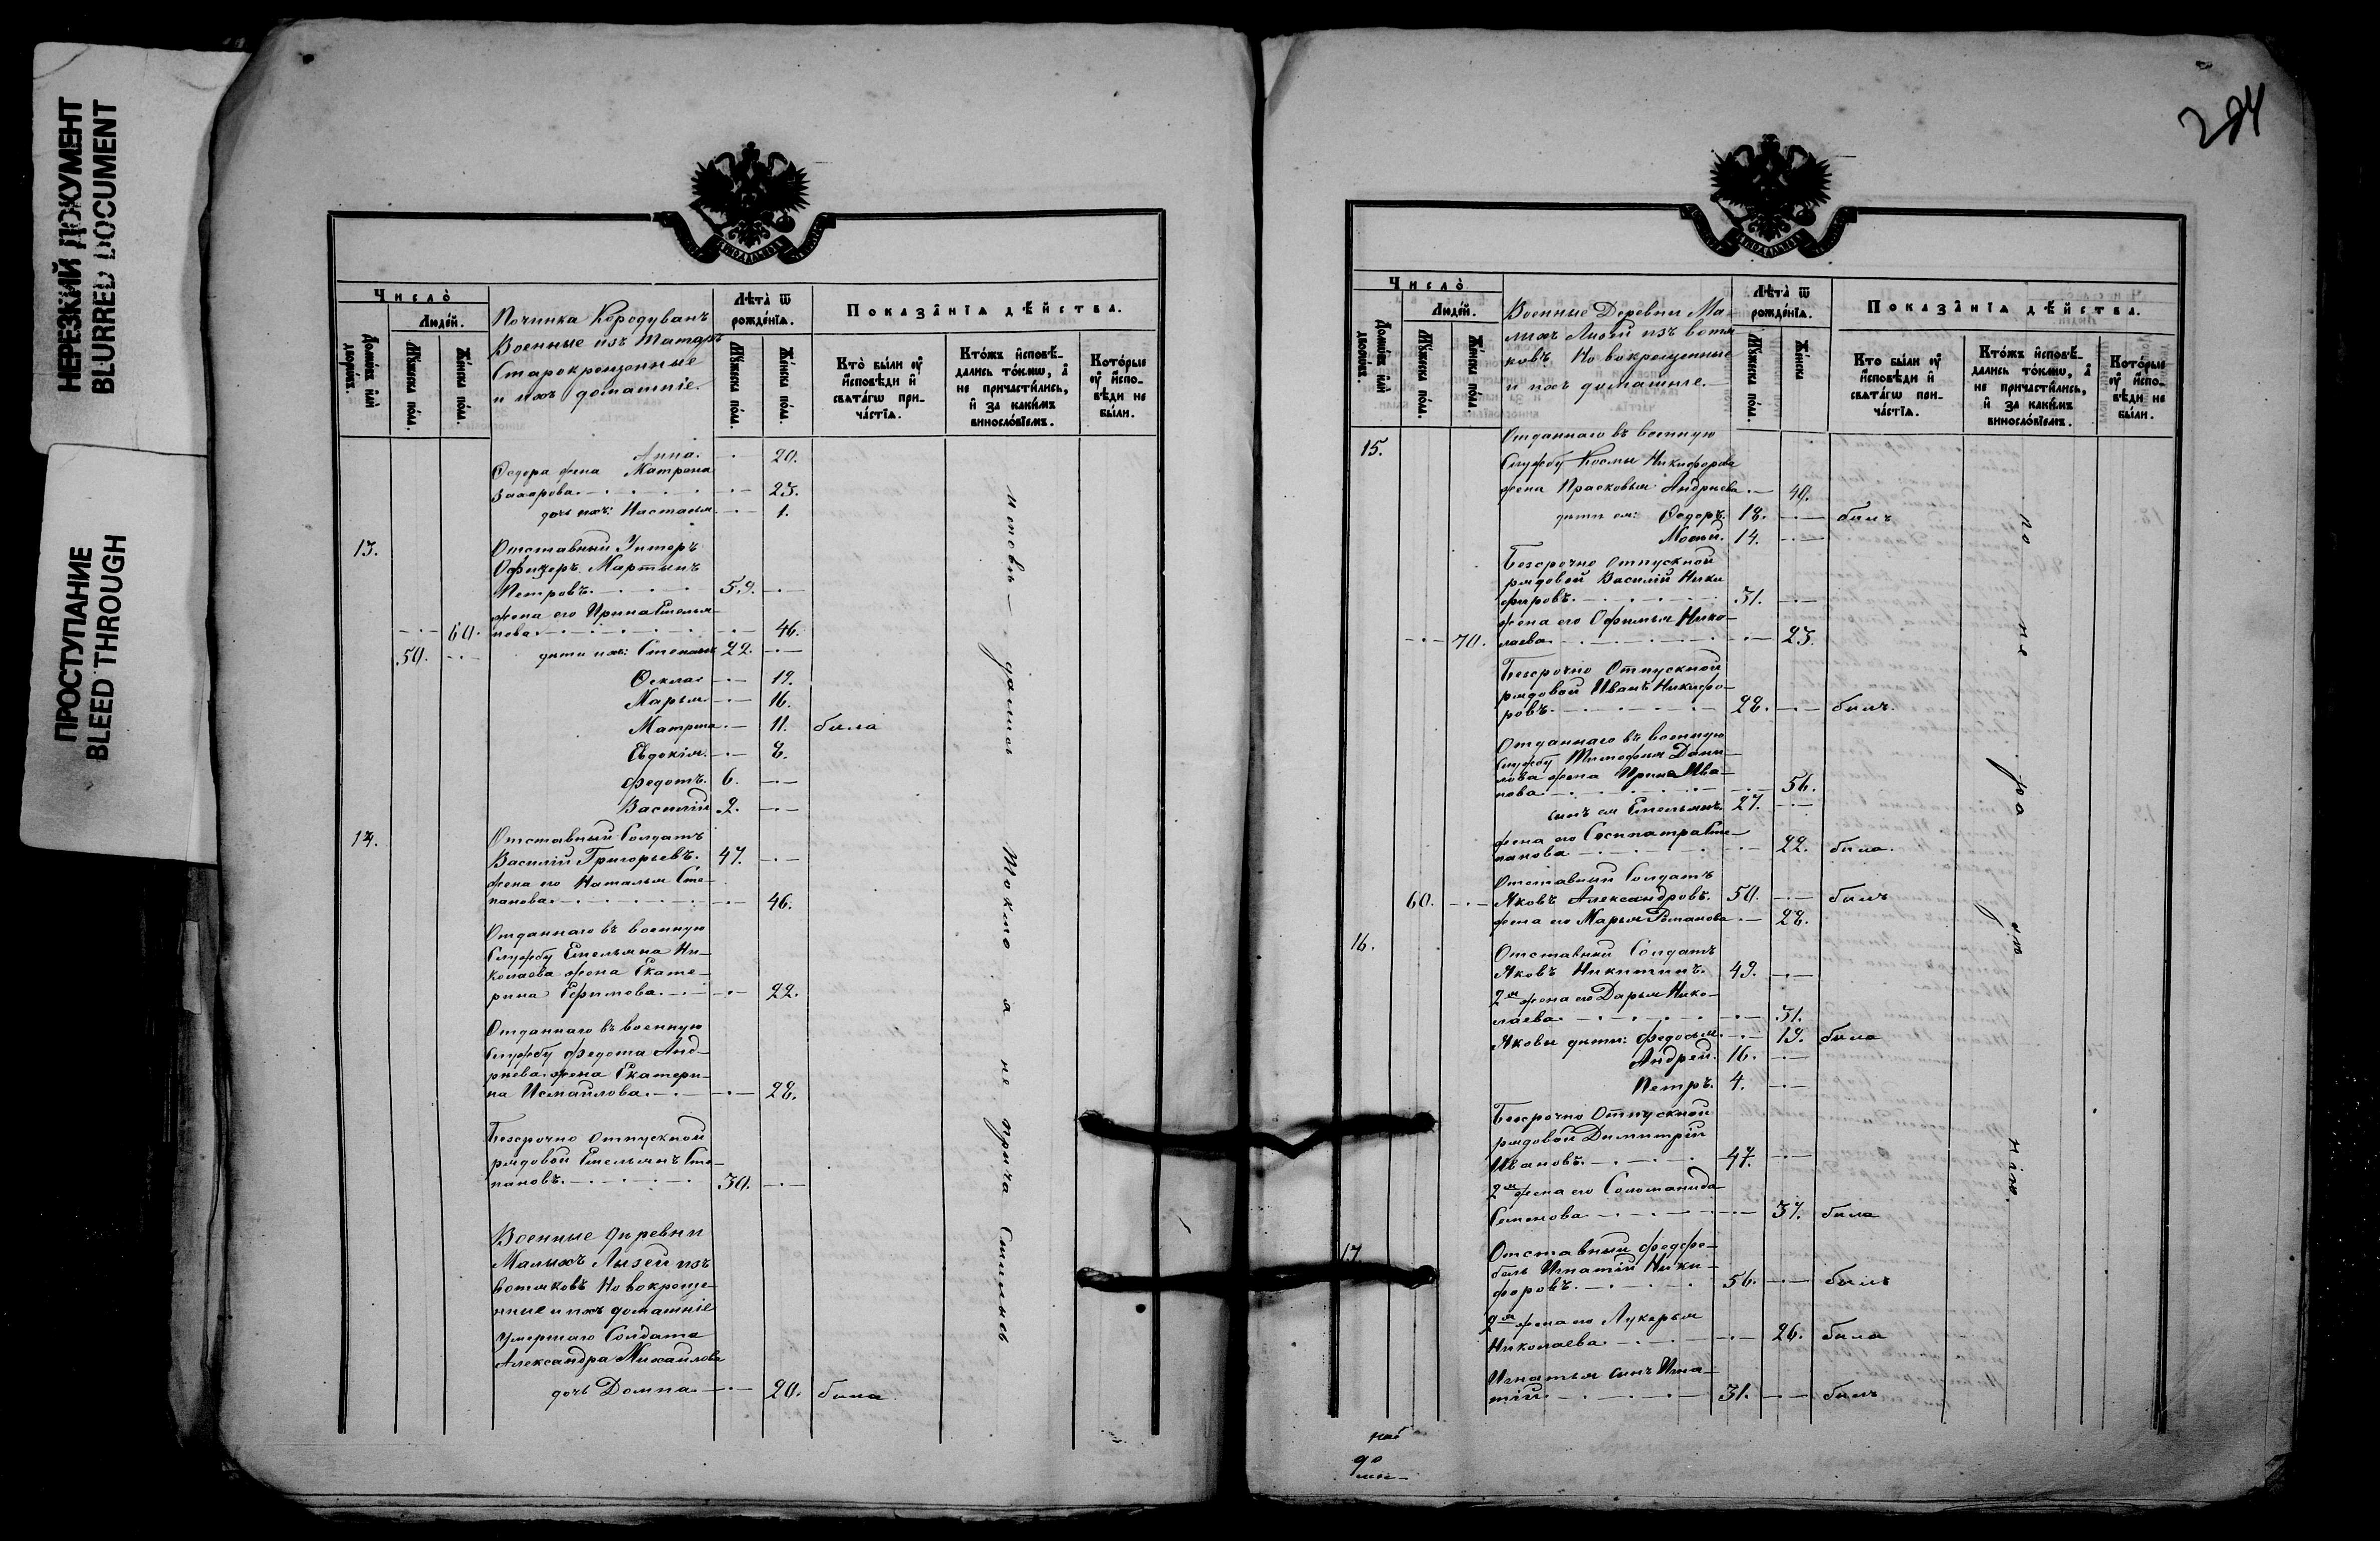 НЕРЕЗКИЙ ДОКУМЕНТ
BLURRED DOCUMENT
ПРОСТУПАНИЕ
BLEED THROUGH
Число̀
Людей.
Домѡвъ или дворѡвъ.
Мꙋжеска пола.
Женска пола.
Починка Кородуванъ
Военные изъ татаръ
Старокрещонные
и ихъ домашніе.
Лѣта ѿ рожденїѧ.
Мꙋжеска пола.
Женска пола.
Показанїѧ дѣйства.
Кто были ᲂу҆ исповѣди и свѧтагѡ причастїѧ.
Ктожъ исповѣдались токмѡ, а не причастились, и за какимъ винословїемъ.
Которые ᲂу҆ исповѣди не были.
Анна. — 20.
Ѳедора жена Матрона
Захарова. — 23.
дочь ихъ: Настасья — 1.
13. Отставный Унтеръ
Офицеръ Мартынъ
Петровъ. 59. —
жена его Ирина Емелья-
60. нова. — 46.
50. — дѣти ихъ: Степанъ 22. —
Ѳекла — 19.
Марья — 16.
Матрона — 11. была
Евдокія — 8.
Федотъ. 6. —
Василій 2. —
14. Отставный Солдатъ
Василій Григорьевъ. 47. —
жена его Наталья Сте-
панова. — 46.
Отданнаго въ военную
Службу Емельяна Ни-
колаева жена Екате-
рина Ефимова. — 22.
Отданнаго въ военную
Службу Федота Анд-
рѣева жена Екатери-
на Исмаилова. — 28.
Безсрочно Отпускной
рядовой Емельянъ Сте-
пановъ. 30. —
Военные деревни
Малыхъ Лызей изъ
вотяковъ Новокреще-
нные и ихъ домашніе
Умершаго Солдата
Александра Михайлова
дочь Домна. — 20. была
исповѣ- дались Токмо а не прича стились
Число̀
Людей.
Домѡвъ или дворѡвъ.
Мꙋжеска пола.
Женска пола.
Военные Деревни Ма-
лыхъ Лызей изъ вотя
ковъ Новокрещенные
и ихъ домашніе.
Лѣта ѿ рожденїѧ.
Мꙋжеска пола.
Женска
Показанїѧ дѣйства.
Кто были ᲂу҆ исповѣди и свѧтагѡ причастїѧ.
Ктожъ исповѣдались токмѡ, а не причастились, и за какимъ винословїемъ.
Которые ᲂу҆ исповѣди не были.
15. Отданнаго въ военную
Службу Космы Никифорова
жена Прасковья Андреева — 40.
дѣти ея: Ѳедоръ. 18. — былъ
Мосей. 14. —
Безсрочно Отпускной
рядовой Василій Ники
форовъ. 31. —
жена его Офимья Нико-
70. лаева. — 23.
Безсрочно Отпускной
рядовой Иванъ Никифо-
ровъ. 28. — былъ.
Отданнаго въ военную
Службу Тимофея Дани-
лова жена Ирина Ива-
нова. — 56.
сынъ ея Емельянъ. 27. —
жена его Сосипатра Сте-
панова — 22. была.
Отставный Солдатъ
60. — Яковъ Александровъ. 50. — былъ
жена его Марья Романова — 28.
16. Отставный Солдатъ
Яковъ Никитинъ. 49. —
2я жена его Дарья Нико-
лаева. — 31.
Яковы дѣти: Федосья — 19. была
Андрей. 16. —
Петръ. 4. —
Безсрочно Отпускной
рядовой Димитрій
Ивановъ. 47. —
2я жена его Соломанида
Семенова — 37. была
17 Отставный фелдфе-
бель Игнатій Ники-
форовъ. 56. — былъ
2я жена его Лукерья
Николаева. — 26. была
Игнатья сынъ Игна-
тій. 31. — былъ
по не ра дѣ нію.